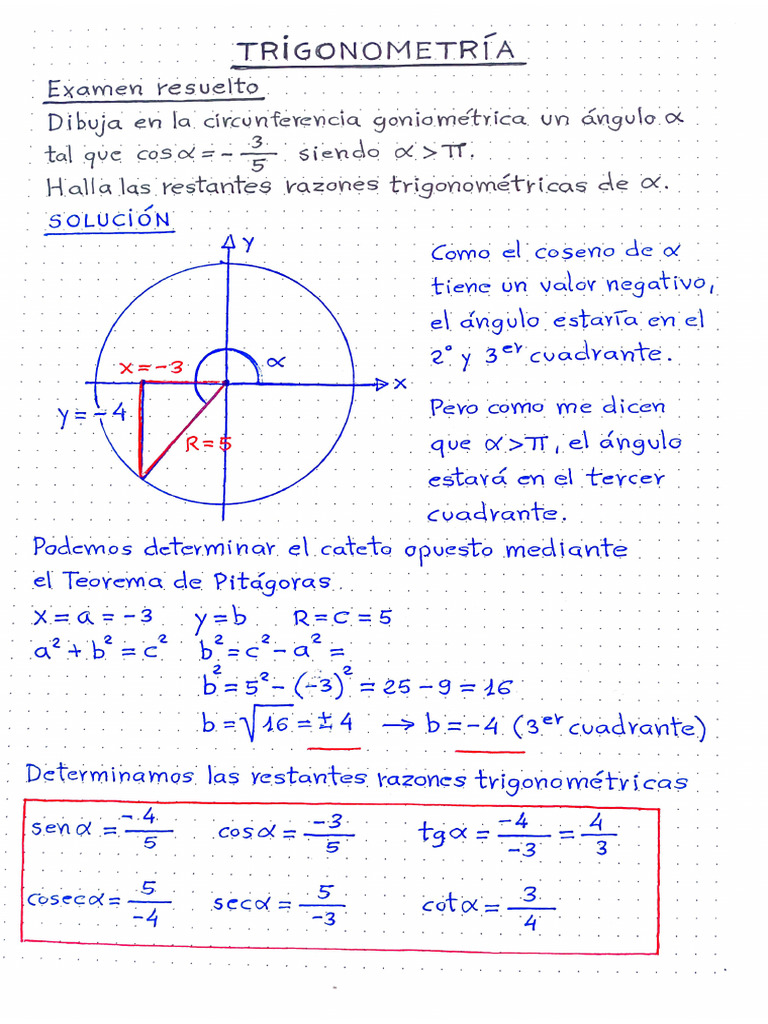 TRIGONOMETRÍA
Examen resuelto
Dibuja en la circunferencia goniométrica un ángulo α
tal que cos α = - 3/5 siendo α > π.
Halla las restantes razones trigonométricas de α.
SOLUCIÓN
y
x = -3
α
x
y = -4
R = 5
Como el coseno de α
tiene un valor negativo,
el ángulo estaría en el
2º y 3er cuadrante.
Pero como me dicen
que α > π, el ángulo
estará en el tercer
cuadrante.
Podemos determinar el cateto opuesto mediante
el Teorema de Pitágoras
x = a = -3 y = b R = c = 5
a² + b² = c² b² = c² - a² =
b² = 5² - (-3)² = 25 - 9 = 16
b = √16 = ± 4 → b = -4 (3er cuadrante)
Determinamos las restantes razones trigonométricas
sen α = -4/5 cos α = -3/5 tg α = -4/-3 = 4/3
cosec α = 5/-4 sec α = 5/-3 cot α = 3/4